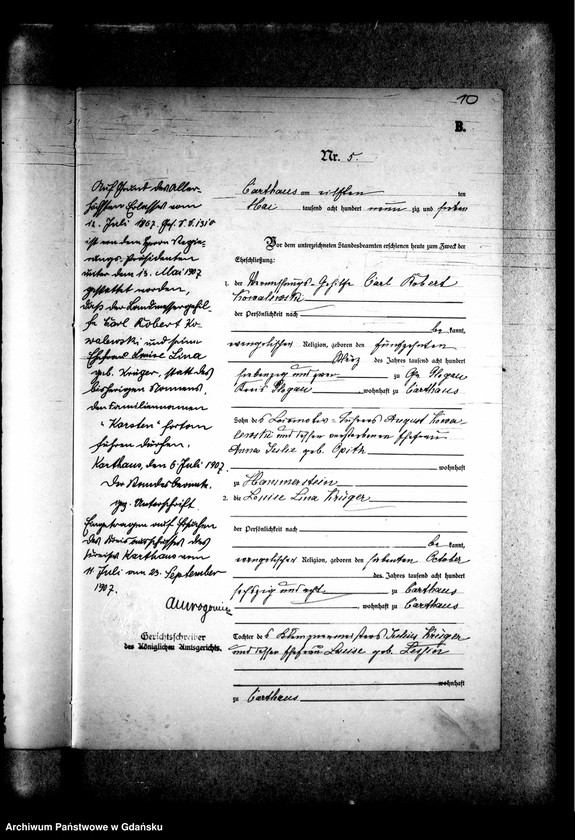 10
B.
Nr. 5.
Auf Grund des Aller-
höchsten Erlasses vom
12. Juli 1867. Ges. S. S. 1310
ist von dem Herrn Regie-
rungs-Präsidenten
unter dem 13. Mai 1907
gestattet worden,
daß der Landmessergehil-
fe Carl Robert Ko-
walewski und seine
Ehefrau Luise Lina
geb. Krüger, statt des
bisherigen Namens,
den Familiennamen
"Karsten" fortan
führen dürfen.
Karthaus, den 6 Juli 1907.
Der Standesbeamte.
gez. Unterschrift
Eingetragen auf Ersuchen
des Kreisausschusses des
Kreises Karthaus vom
11 Juli am 23. September
1907.
Gerichtsschreiber
des Königlichen Amtsgerichts.
Carthaus am elften ten
Mai tausend acht hundert neun zig und sieben
Vor dem unterzeichneten Standesbeamten erschienen heute zum Zweck der
Eheschließung:
1. der Vermessungs-Gehilfe Carl Robert
Kowalewski
der Persönlichkeit nach
be kannt,
evangelischer Religion, geboren den fünfzehnten
März des Jahres tausend acht hundert
siebenzig und zwei zu Gr. Glogau
Kreis Glogau wohnhaft zu Carthaus
Sohn des Locomotiv-Führers August Kowa-
lewski und dessen verstorbenen Ehefrau
Anna Julie geb. Opitz
wohnhaft
zu Hammerstein
2. die Louise Lina Krüger
der Persönlichkeit nach
be kannt,
evangelischer Religion, geboren den siebenten October
des Jahres tausend acht hundert
sechszig und acht zu Carthaus
wohnhaft zu Carthaus
Tochter des Klempnermeisters Julius Krüger
und dessen Ehefrau Louise geb.
wohnhaft
zu Carthaus
Archiwum Państwowe w Gdańsku